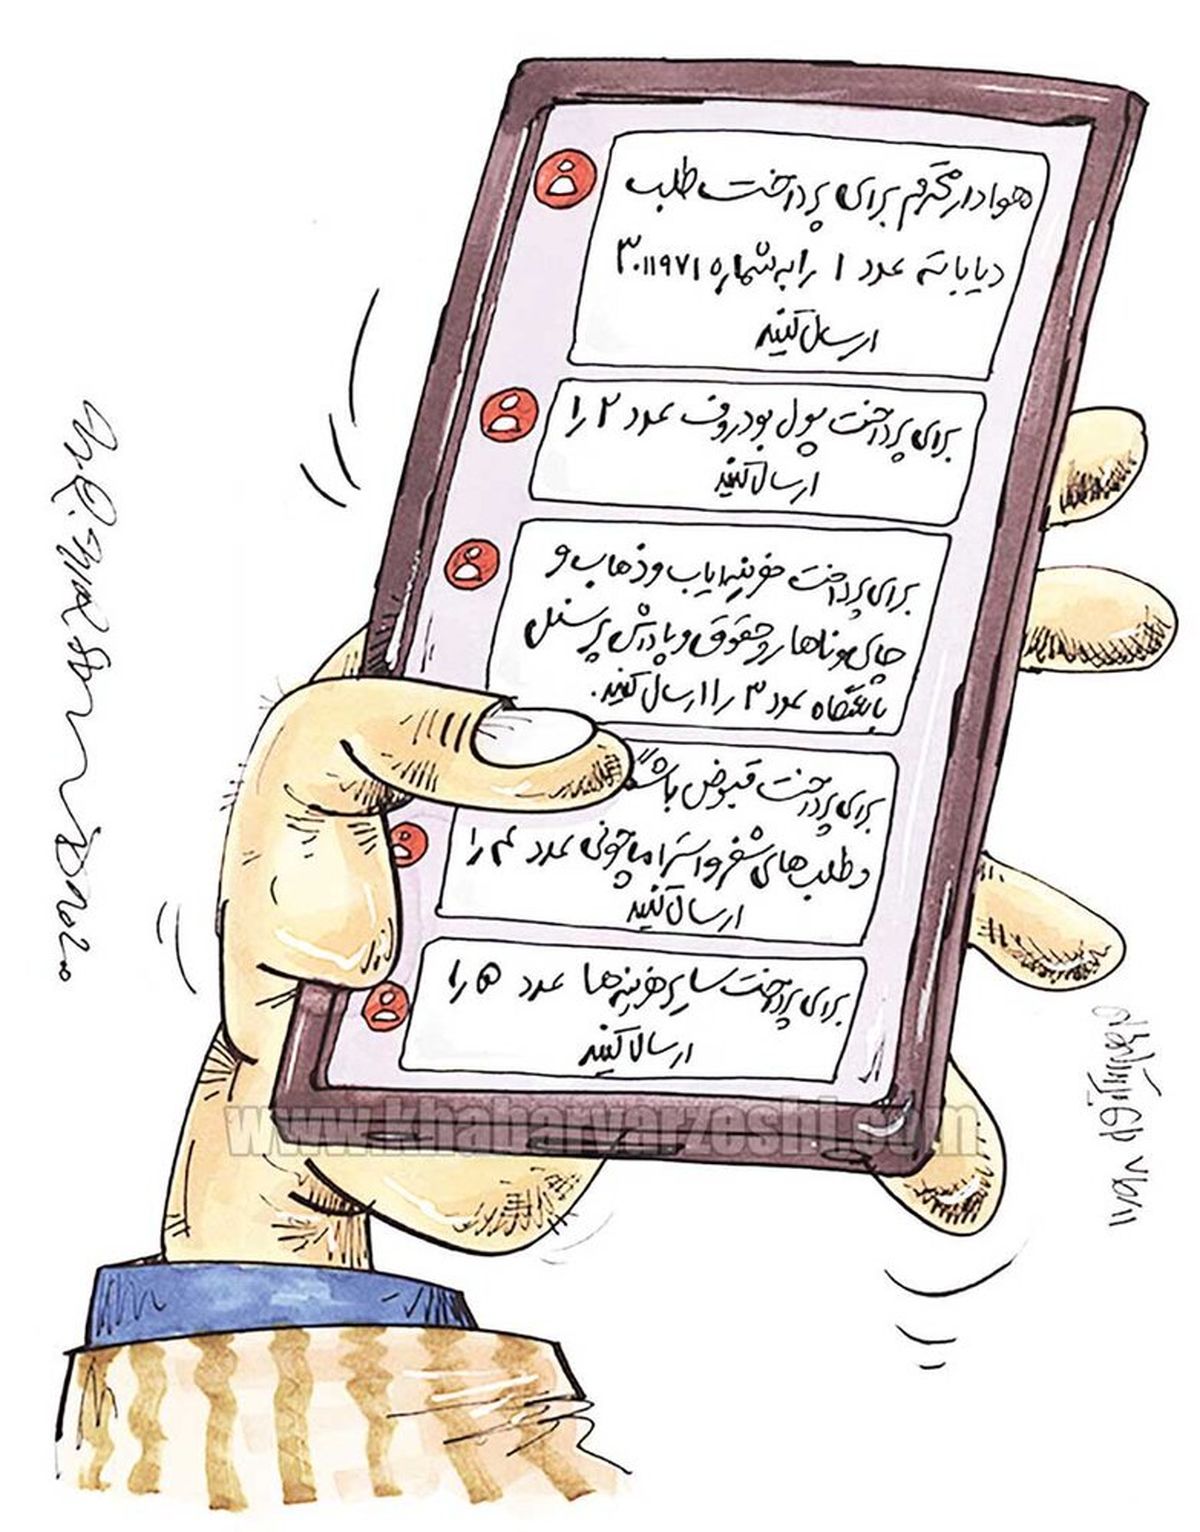 هوادار محترم برای پرداخت طلب
دیاباته عدد ۱ را به شماره ۳۰۱۱۹۷۱
ارسال کنید
برای پرداخت پول بودروف عدد ۲ را
ارسال کنید
برای پرداخت هزینه ایاب و ذهاب و
چای و ناهار و حقوق و پاداش پرسنل
باشگاه عدد ۳ را ارسال کنید.
برای پرداخت قبوض باشگاه
و طلب های شفر و استراماچونی عدد ۴ را
ارسال کنید
برای پرداخت سایر هزینه ها عدد ۵ را
ارسال کنید
www.khabarvarzeshi.com